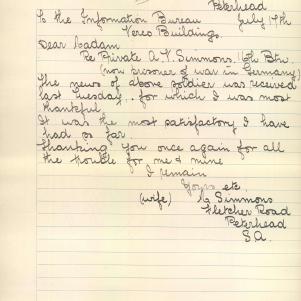 Peterhead
To the Information Bureau July 17th
Verco Buildings.
Dear Madam
Re Private A. V. Simmons. 16th Btn.
(now prisoner of war in Germany)
The news of above soldier was received
last Tuesday.. for which I was most
thankful
It was the most satisfactory I have
had so far.
Thanking you once again for all
the trouble for me & mine
I remain
Yours etc.
(wife) Simmons
Fletcher Road
Peterhead
S.A.